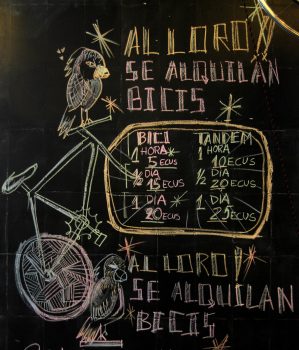 AL LORO!
SE ALQUILAN
BICIS
BICI TANDEM
1 HORA 1 HORA
5 ECUS 10 ECUS
½ DIA ½ DIA
15 ECUS 20 ECUS
1 DIA 1 DIA
20 ECUS 25 ECUS
AL LORO!
SE ALQUILAN
BICIS